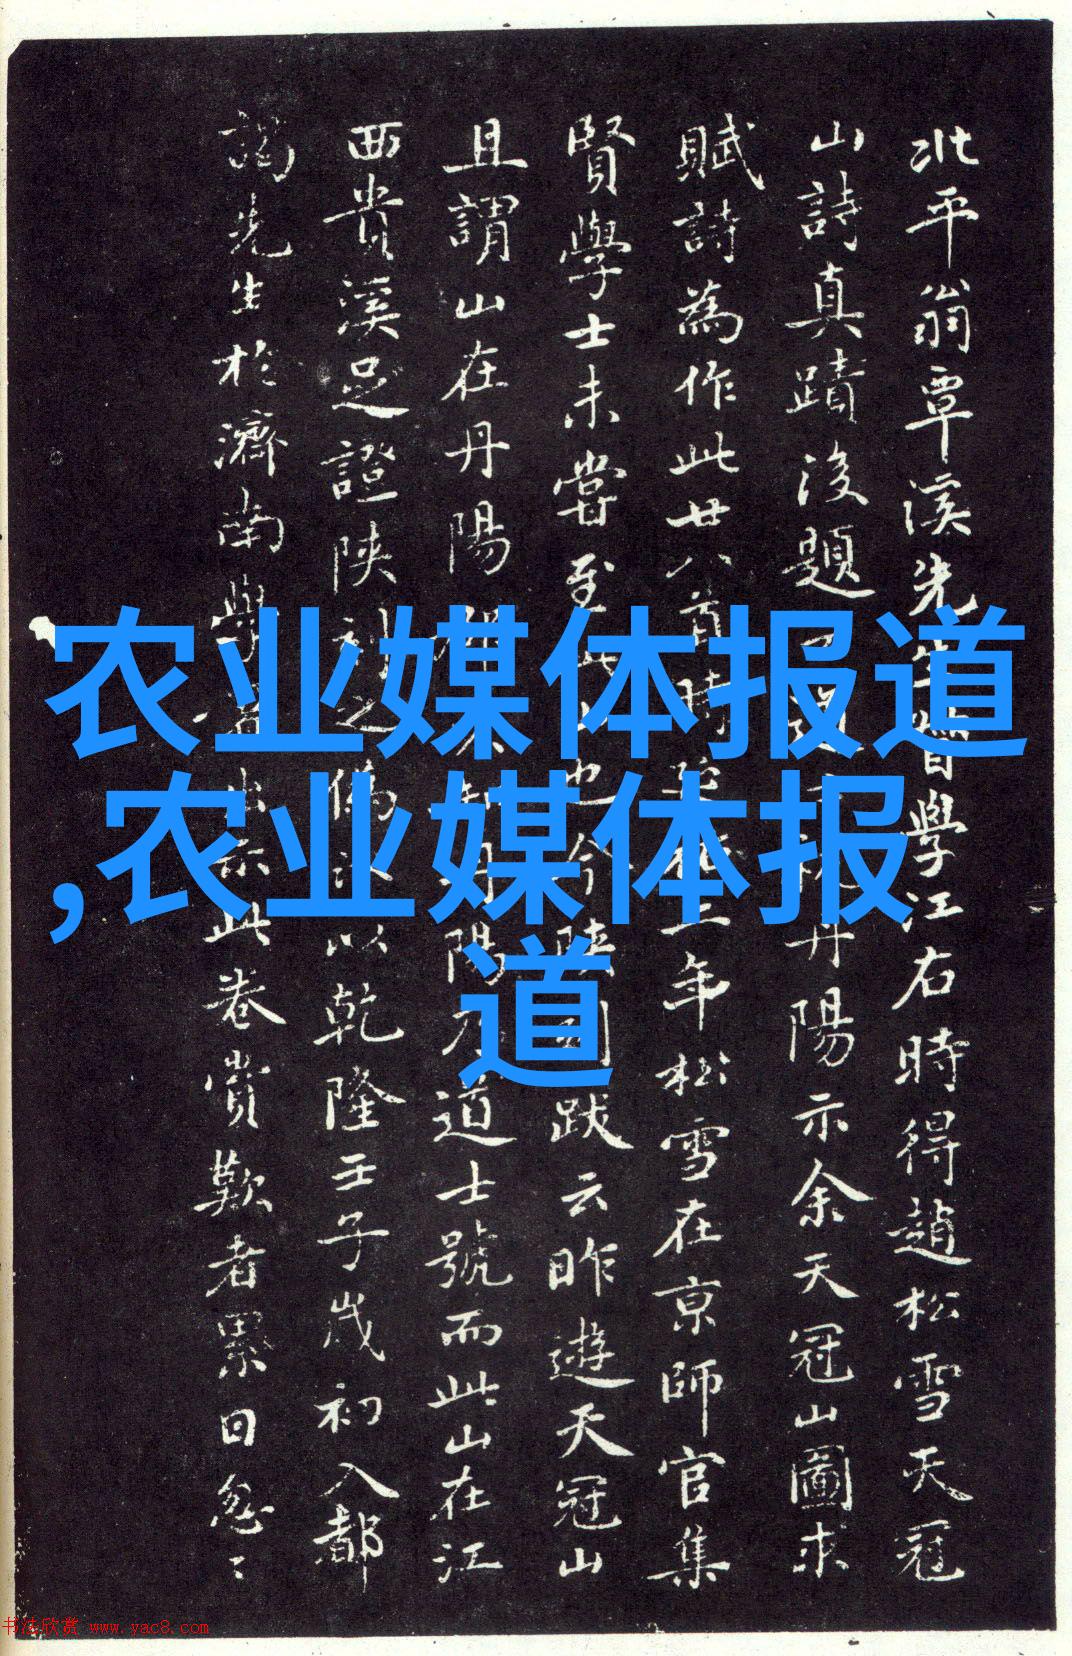 北平翁覃溪先學江右時得趙松雪天冠
山詩真蹟後題丹陽示余天冠山圖求
賦詩為作此廿八首時年松雪在京師官集
賢學士未嘗至山也今陝跋云昨遊天冠山
且謂山在丹陽陽道士號而此山在江
西貴溪足證陝刻之偽以乾隆壬子歲初入都
謁先生於濟南學此卷賞歎者累日忽〻
农业媒体报道
,农业媒体报
道
书法欣赏 www.yac8.com